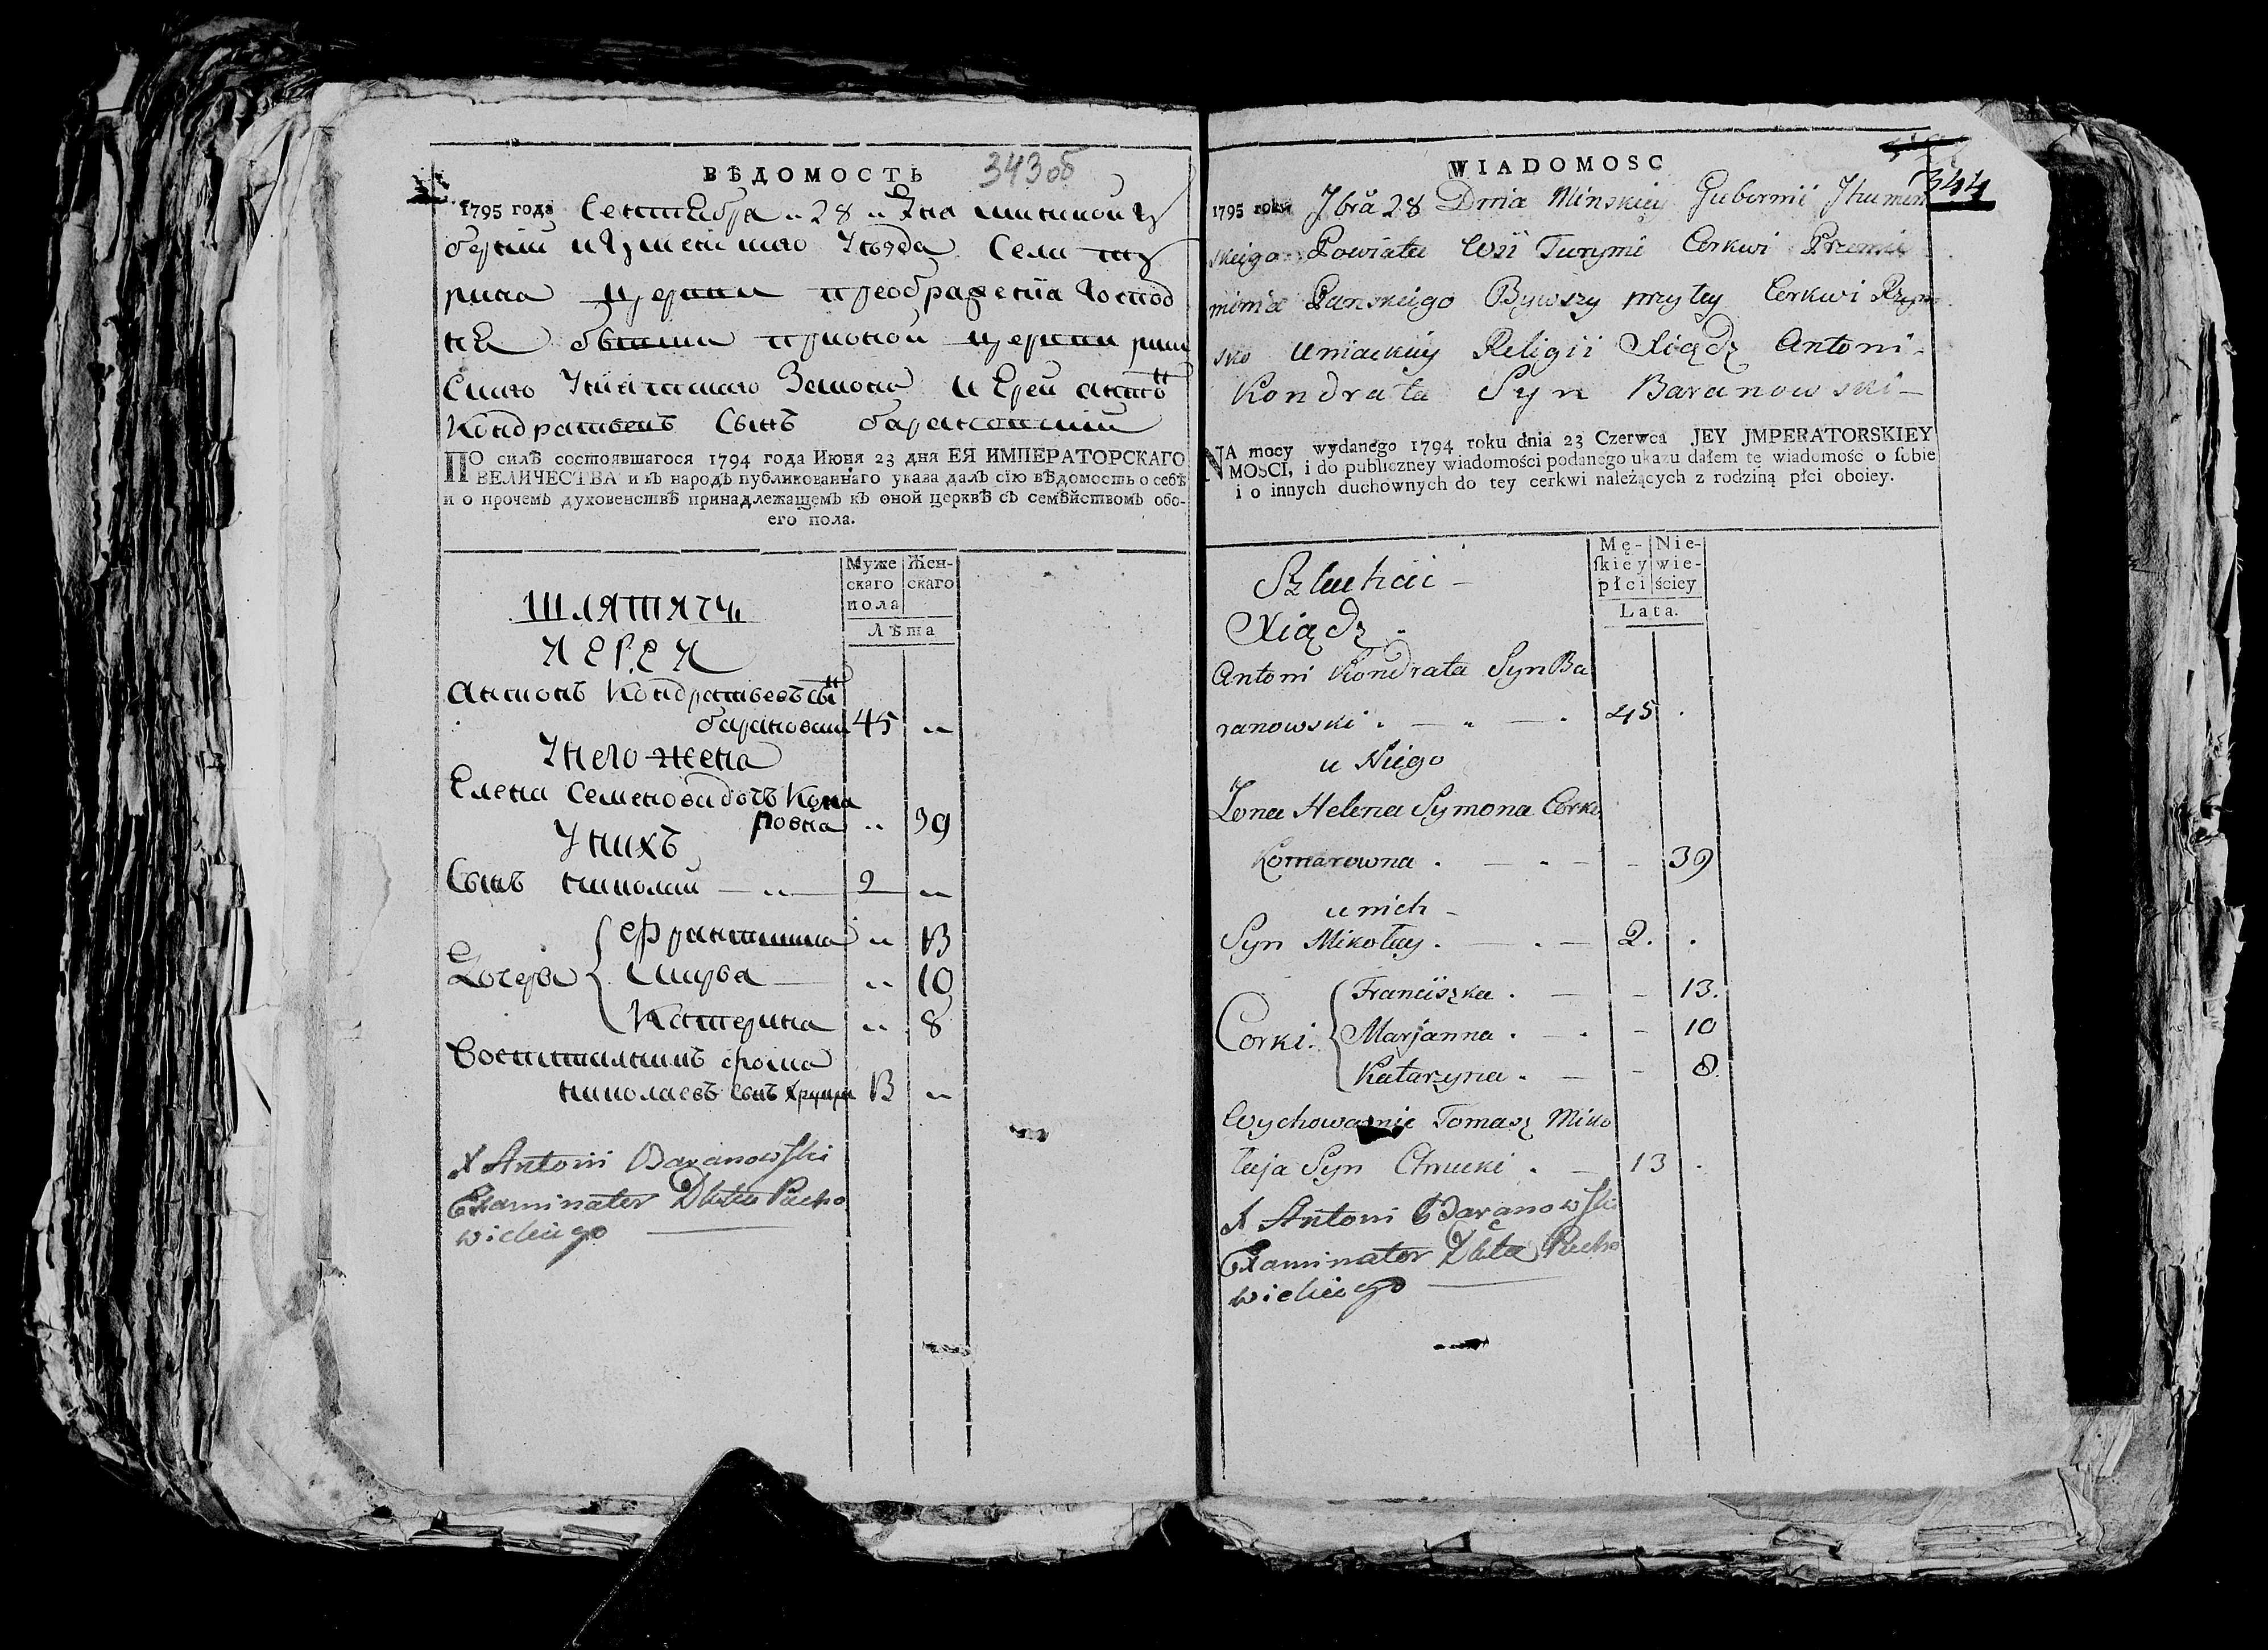 ВѢДОМОСТЬ 343об
1795 года Сентебра 28 Дня минской гу
бернїи игуменскаго Уезда Села ту
рина церкви преображенїа господ
на бывши при оной церкви рим
скаго Унїатскаго Закона иерей антон
Кондратьевъ Сынъ барановскїй
ПО силѣ состоявшагося 1794 года Июня 23 дня ЕЯ ИМПЕРАТОРСКАГО
ВЕЛИЧЕСТВА и въ народъ публикованнаго указа далъ сїю вѣдомость о себѣ
и о прочемъ духовенствѣ принадлежащемъ къ оной церквѣ съ семѣйствомъ обо-
его пола.
Муже Жен-
скаго скаго
пола
Лѣта
ШЛЯТЯТЧИ
ИЕРЕИ
Антонъ Кондратьевъ сын
барановски 45
У него жена
Елена Семеновадочъ Кома
ровна 39
У нихъ
Сынъ николай 2
Дочерѣ
Францишка 13
10
Катерина 8
Воспитанникъ фома
николаевъ Сынъ 13
X Antoni Baranowski
Examinator Dktu Pucho
wickiego
WIADOMOSC 344
1795 roku 7bra 28 Dnia Minskiey Gubernii Jhumen
skiego Powiatu Wsi Turyni Cerkwi Przemie
nienia Panskiego Bywszy przytey Cerkwi Rzym
sko Uniackiey Religii Xiądz Antoni
Kondrata Syn Baranowski
NA mocy wydanego 1794 roku dnia 23 Czerwca JEY JMPERATORSKIEY
MOSCI, i do publiczney wiadomości podanego ukazu dałem tę wiadomość o sobie
i o innych duchownych do tey cerkwi należących z rodziną płci oboiey.
Mę- Nie-
skiey wie-
płci ściey
Lata.
Szlachcic
Xiądz
Antoni Kondrata Syn Ba
ranowski 45
u Niego
Zona Helena Symona Corka
Komarowna 39
u nich
Syn Mikołay 2.
Corki
Franciszka 13.
Marjanna 10
Katarzyna 8.
Wychowanie Tomasz Miko
łaja Syn 13
X Antoni Baranowski
Examinator Dktu Pucho
wickiego